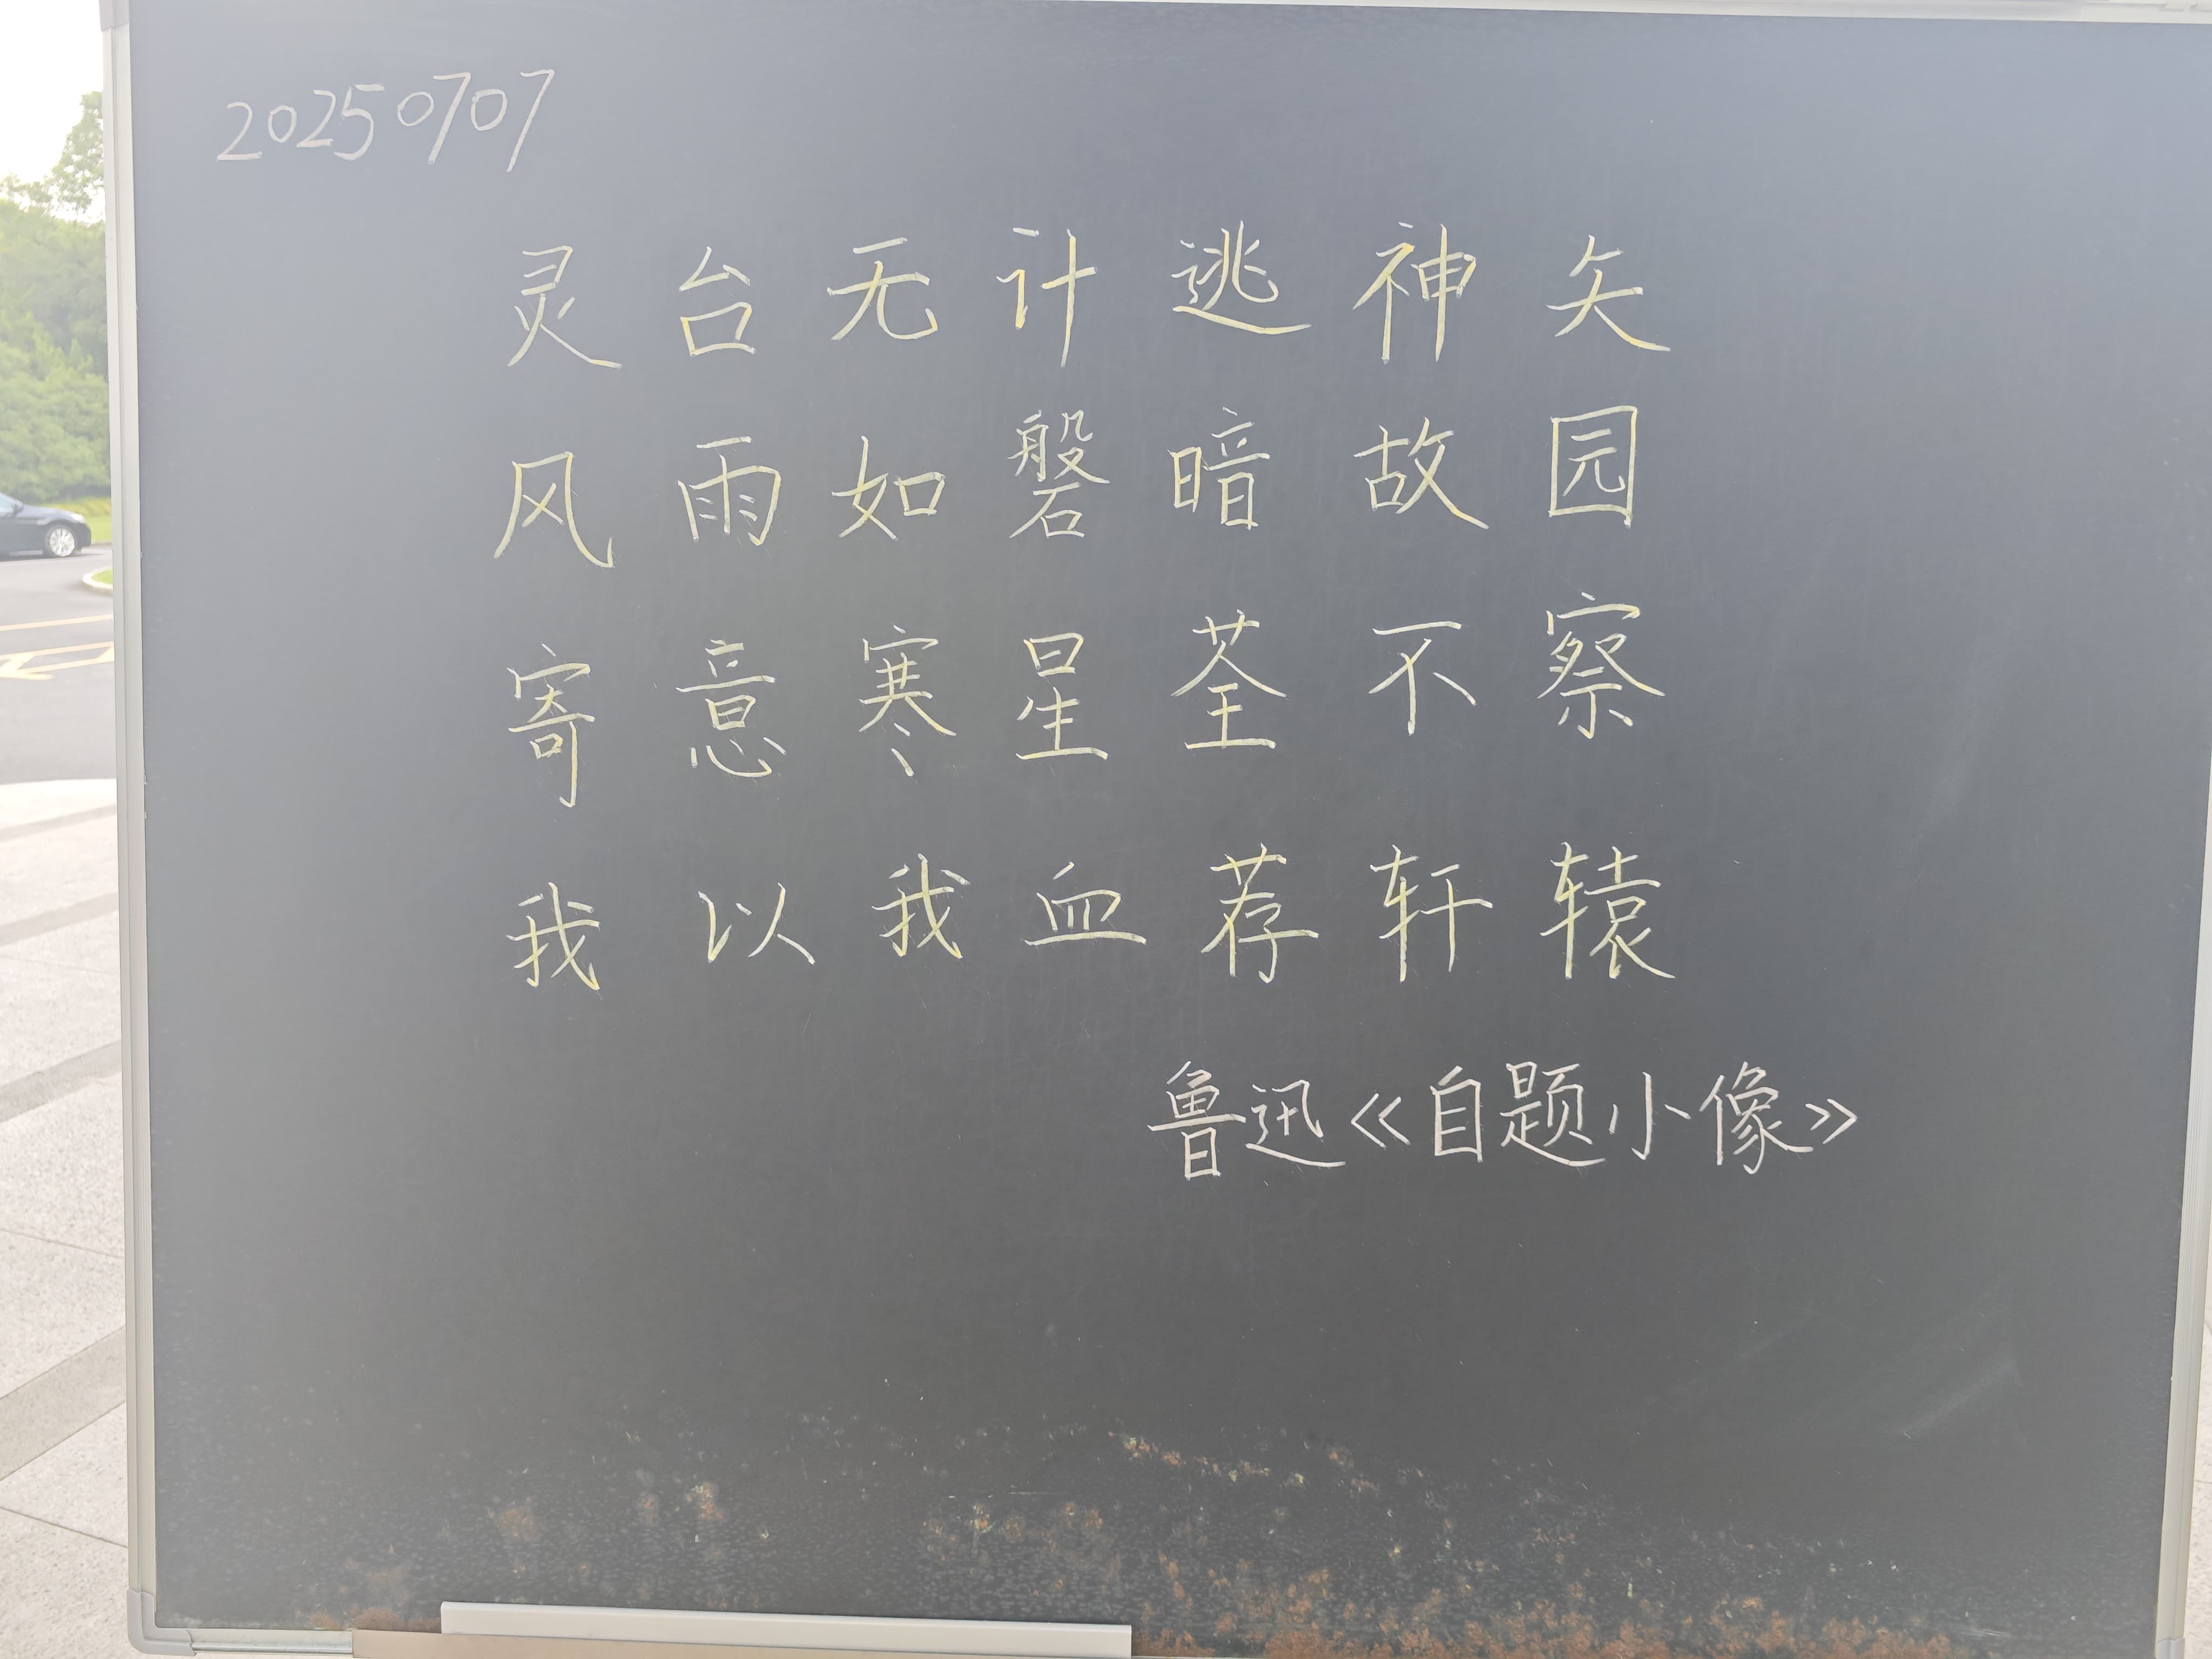 20250707
灵台无计逃神矢
风雨如磐暗故园
寄意寒星荃不察
我以我血荐轩辕
鲁迅《自题小像》